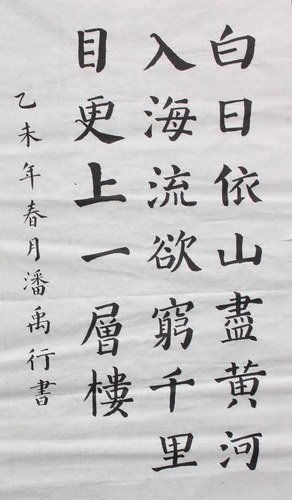 白日依山盡黄河
入海流欲窮千里
目更上一層樓
乙未年春月潘禹行書